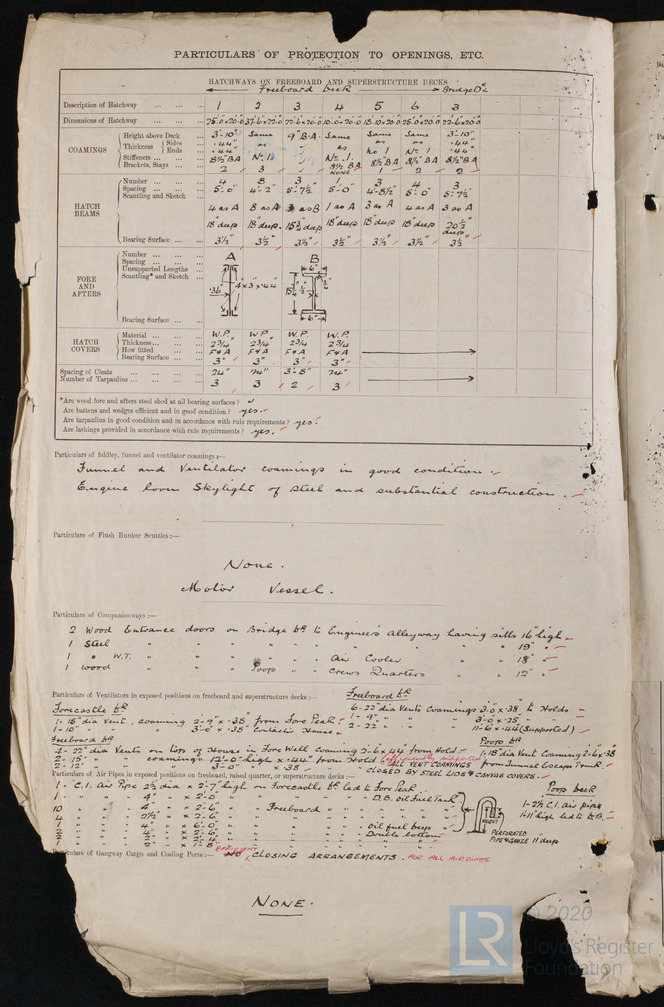 PARTICULARS OF PROTECTION TO OPENINGS, ETC.
HATCHWAYS ON FREEBOARD AND SUPERSTRUCTURE DECKS
Freeboard Deck Bridge Dk
Description of Hatchway 1 2 3 4 5 6 3
Dimensions of Hatchway 25.0×20.0 37.6×22.0 22.6×20.0 10.0×20.0 18.10×20.0 25.0×20.0 22.6×20.0
COAMINGS
Height above Deck 3'-10" Same 9"B.A. Same Same Same 3'-10"
Thickness Sides .44" as " as as as .44"
Ends .44" " No 1 No 1 .44"
Stiffeners 8½"BA No.1 " No.1 8½"BA 8½"BA 8½"BA
Brackets, Stays 2 3 " NONE 1 2 2
HATCH BEAMS
Number 4 8 3 1 3 4 3
Spacing 5'-0" 4'-2" 5'-7½" 5'-0" 4'-8½" 5'-0" 5'-7½"
Scantling and Sketch 4 as A 8 as A 3 as B 1 as A 3 as A 4 as A 3 as A
18"deep 18"deep 15¾"deep 18"deep 18"deep 18"deep 20½" deep
Bearing Surface 3½" 3½" 3½" 3½" 3½" 3½" 3½"
FORE AND AFTERS
Number
Spacing
Unsupported Lengths
Scantling* and Sketch
Bearing Surface
A B
.36" 4"×3"×.44 6" 6"
HATCH COVERS
Material W.P. W.P. W.P. W.P.
Thickness 2¾" 2¾" 2¾ 2¾"
How fitted F&A F&A F&A F&A
Bearing Surface 3" 3" 3" 3"
Spacing of Cleats 24" 24" 3'-8" 24"
Number of Tarpaulins 3 3 2 3
*Are wood fore and afters steel shod at all bearing surfaces?
Are battens and wedges efficient and in good condition? yes.
Are tarpaulins in good condition and in accordance with rule requirements? yes.
Are lashings provided in accordance with rule requirements? yes.
Particulars of fiddley, funnel and ventilator coamings:—
Funnel and Ventilator coamings in good condition.
Engine Room Skylight of Steel and substantial construction.
Particulars of Flush Bunker Scuttles:—
None.
Motor Vessel.
Particulars of Companionways:—
2 Wood Entrance doors on Bridge Dk to Engineer's Alleyway having sills 16" high
1 Steel " " " " " " " " 19"
1 " W.T. " " " " Air Cooler " " 18"
1 Wood " " Poop " " Crews Quarters " " 12"
Particulars of Ventilators in exposed positions on freeboard and superstructure decks:—
Freeboard Dk
6-22" dia Vents Coamings 3'.0"×.38 to Holds
1-9" " " 3'-0"×.25 "
2-22" " " 11'-6"×.44 (Supported)
Forecastle Dk
1-18" dia Vent, coaming 2'-9"×.38" from Fore Peak.
1-10" " " 3'-0"×.38"
Freeboard Dk
4-22" dia Vents on tops of House in Fore Well coaming 2'-6×.44 from Hold.
2-15" " " coamings 12'-0" high ×.44" from Hold (efficiently supported)
2-12" " " 3'-0" × .38
Poop Dk
1-18" dia Vent Coaming 2'-6×.38 from Tunnel Escape Trunk.
ALL VENT COAMINGS CLOSED BY STEEL LIDS & CANVAS COVERS.
Particulars of Air Pipes in exposed positions on freeboard, raised quarter, or superstructure decks:—
1 - C.I. Air Pipe 2½ dia × 2'-7" high on Forecastle Dk led to Fore Peak.
1 " " 4" " × 2'-0" " " " D.B. Oil Fuel Tank
10 " " 4" " × 2'-6" " Freeboard " "
4 " " 2½" " × 2'-6" " " "
1 " " 4" " × 6'-0" " " " Oil fuel deep
2 " " 4" " × 2'-6" " " " Double bottom
2 " " 2" " × 2'-4"
1 " " 2" " × 1'-8"
Poop Deck
1-2½ C.I. air pipe
1'-11" high led to D.B.
PERFORATED PIPE & GAUZE 11" deep
EFFICIENT
NO CLOSING ARRANGEMENTS. FOR ALL AIRPIPES
Particulars of Gangway Cargo and Coaling Ports:—
NONE.
LR
© 2020
Lloyd's Register
Foundation